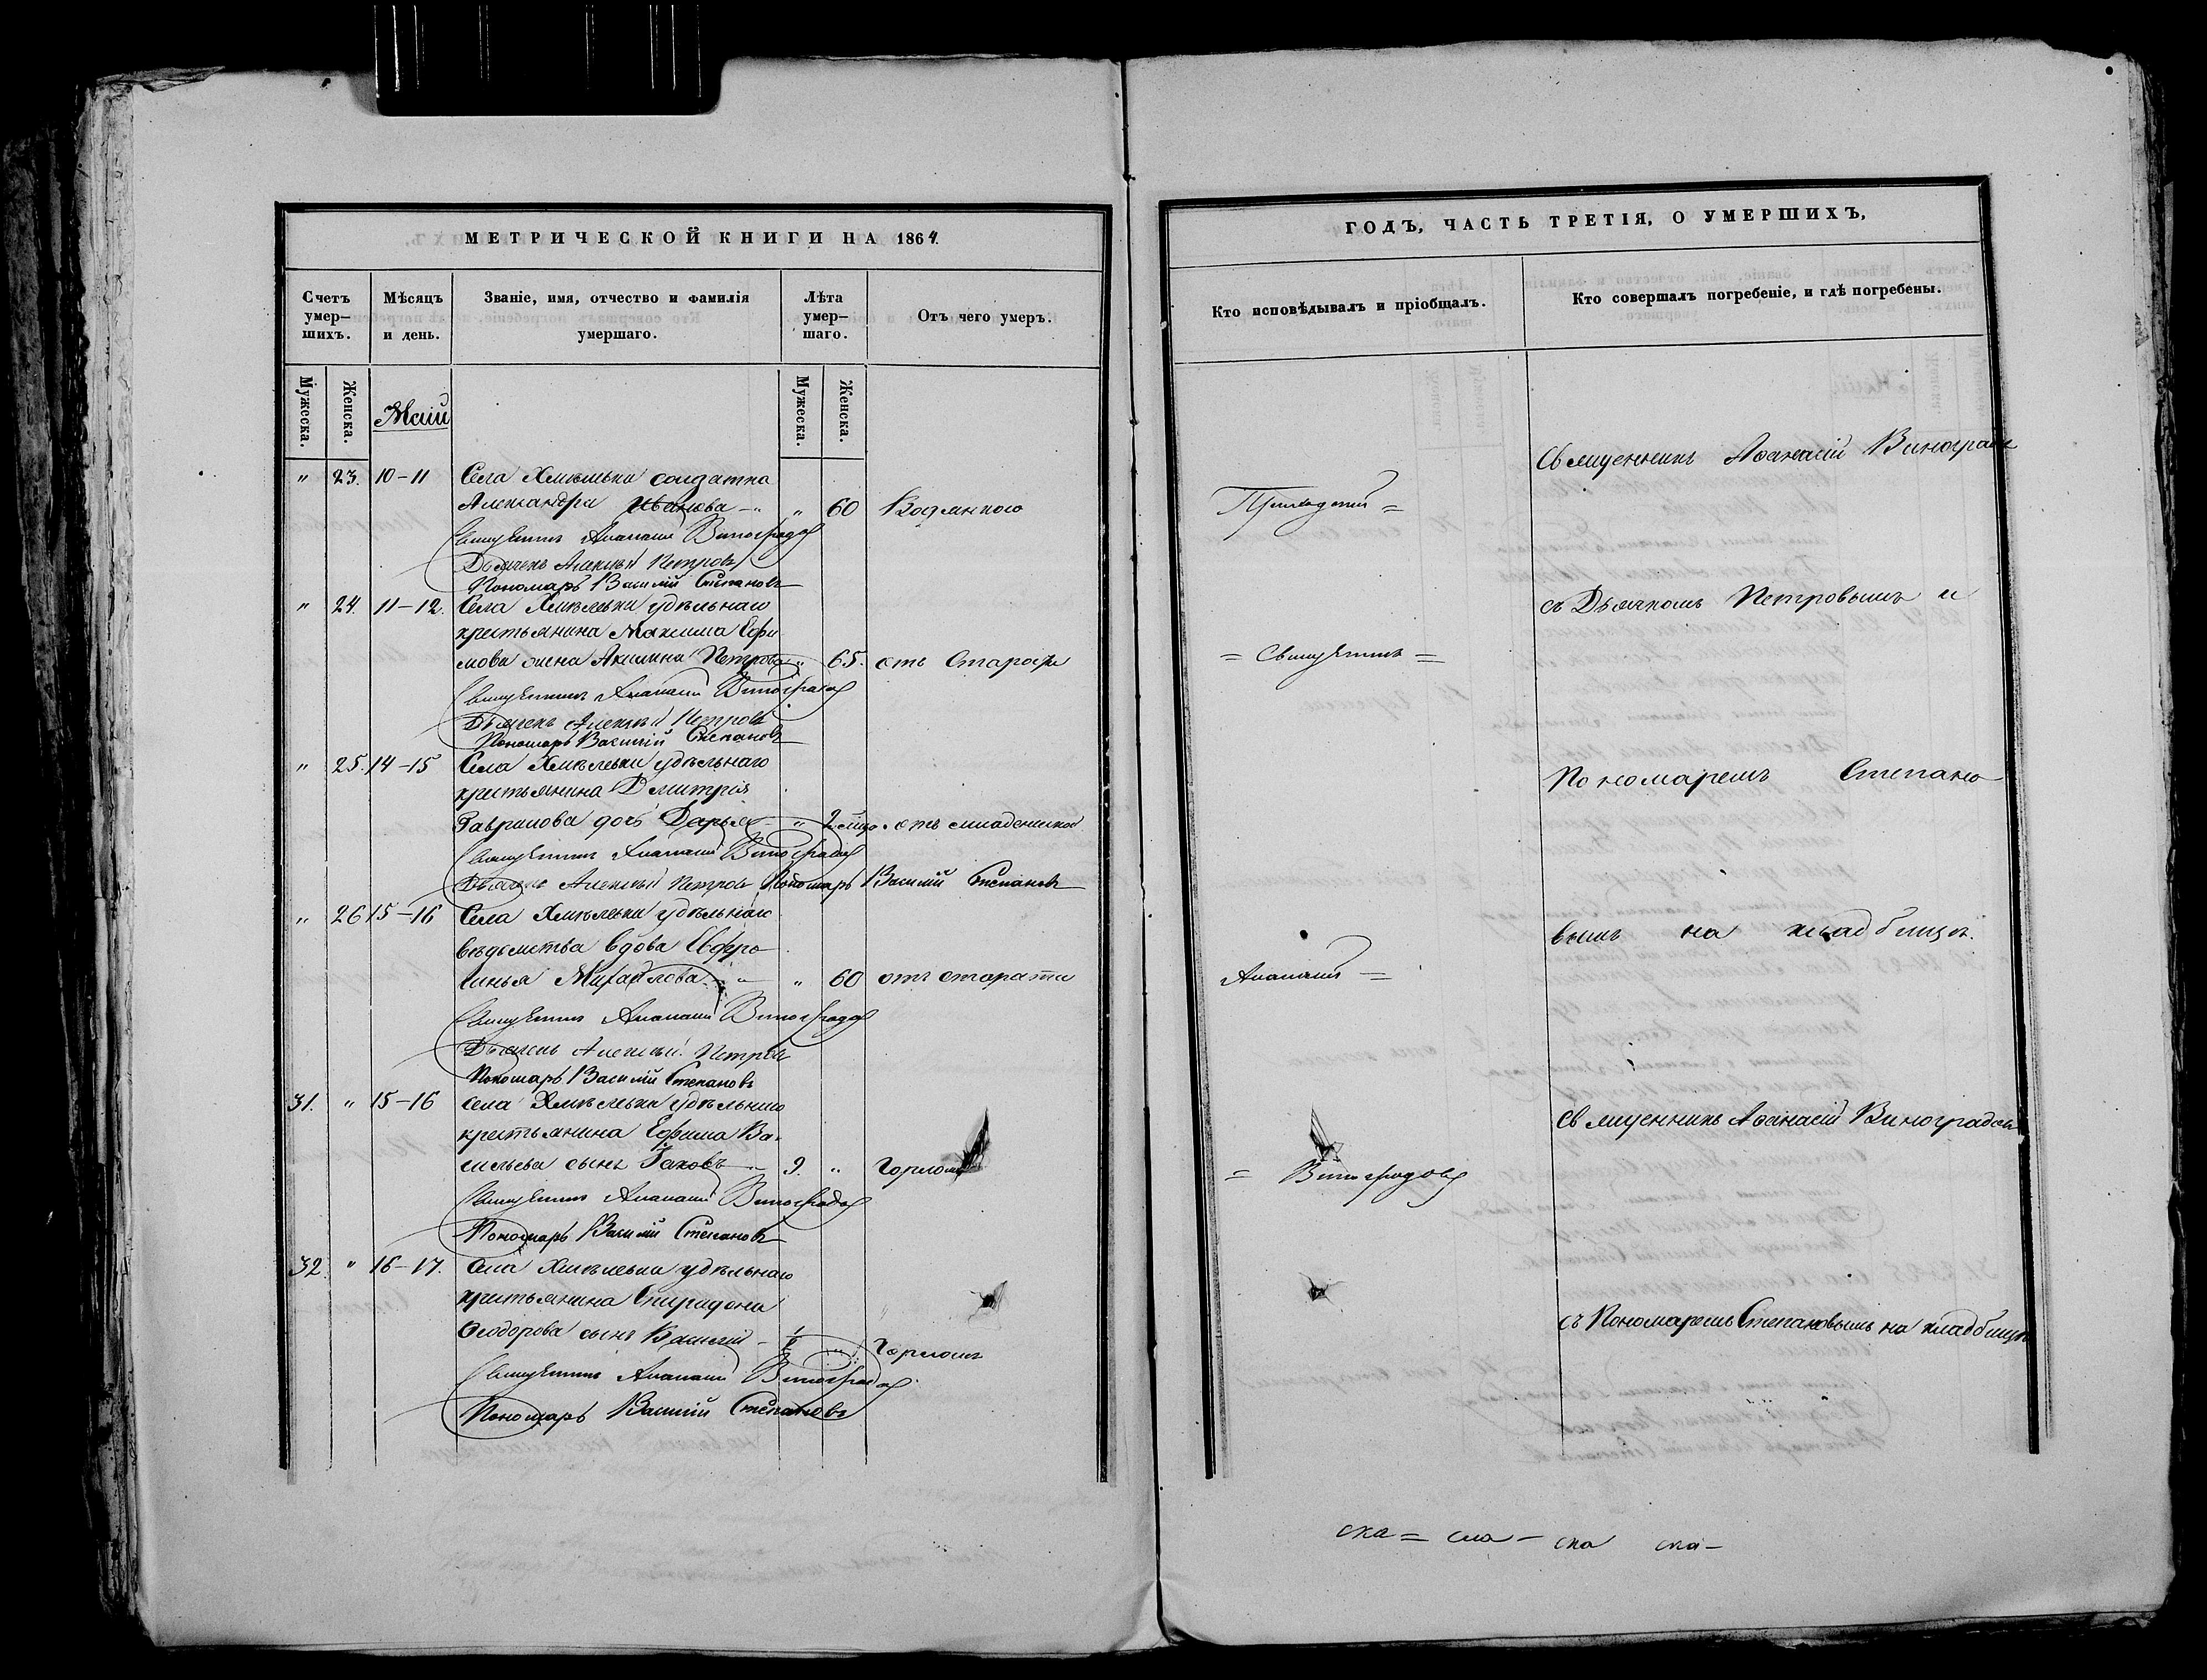 МЕТРИЧЕСКОЙ КНИГИ НА 1864.
Счетъ умершихъ.
Мѣсяцъ и день.
Званіе, имя, отчество и фамилія умершаго.
Лѣта умершаго.
Отъ чего умеръ.
Мужеска.
Женска.
Маій
Мужеска.
Женска.
" 23. 10-11 Села Хмѣлевки солдатка
Александра Иванова - " 60 Водянкою
Священникъ Аѳанасій Виноградовъ
Дьячекъ Алексѣй Петровъ
Пономарь Василій Степановъ
" 24. 11-12. Села Хмѣлевки удѣльнаго
крестьянина Максима Ефи
мова жена Акилина Петрова " 65. отъ Старости
Священникъ Аѳанасій Виноградовъ
Дьячекъ Алексѣй Петровъ
Пономарь Василій Степановъ
" 25. 14-15 Села Хмѣлевки удѣльнаго
крестьянина Дмитрія
Гаврилова дочь Дарья - " 2 отъ младенческой
Священникъ Аѳанасій Виноградовъ
Дьячекъ Алексѣй Петровъ Пономарь Василій Степановъ
" 26 15-16 Села Хмѣлевки удѣльнаго
вѣдомства вдова Евфро
синья Михайлова - " 60 отъ старости
Священникъ Аѳанасій Виноградовъ
Дьячекъ Алексѣй Петровъ
Пономарь Василій Степановъ
31. " 15-16 села Хмѣлевки удѣльнаго
крестьянина Ефима Ва-
сильева сынъ Іаковъ - 9. " Горломъ
Священникъ Аѳанасій Виноградовъ
Пономарь Василій Степановъ
32. " 16-17. Села Хмѣлевки удѣльнаго
крестьянина Спиридона
Ѳеодорова сынъ Василій - 1/2 " Горломъ
Священникъ Аѳанасій Виноградовъ
Пономарь Василій Степановъ
ГОДЪ, ЧАСТЬ ТРЕТІЯ, О УМЕРШИХЪ,
Кто исповѣдывалъ и пріобщалъ.
Кто совершалъ погребеніе, и гдѣ погребены.
Священникъ Аѳанасій Виноградовъ
Приходскій =
съ Дьячкомъ Петровымъ и
= Священникъ =
Пономаремъ Степано
вымъ на кладбищѣ.
Аѳанасій =
Священникъ Аѳанасій Виноградовъ
= Виноградовъ
съ Пономаремъ Степановымъ на кладбищѣ
ска = ска - ска ска -